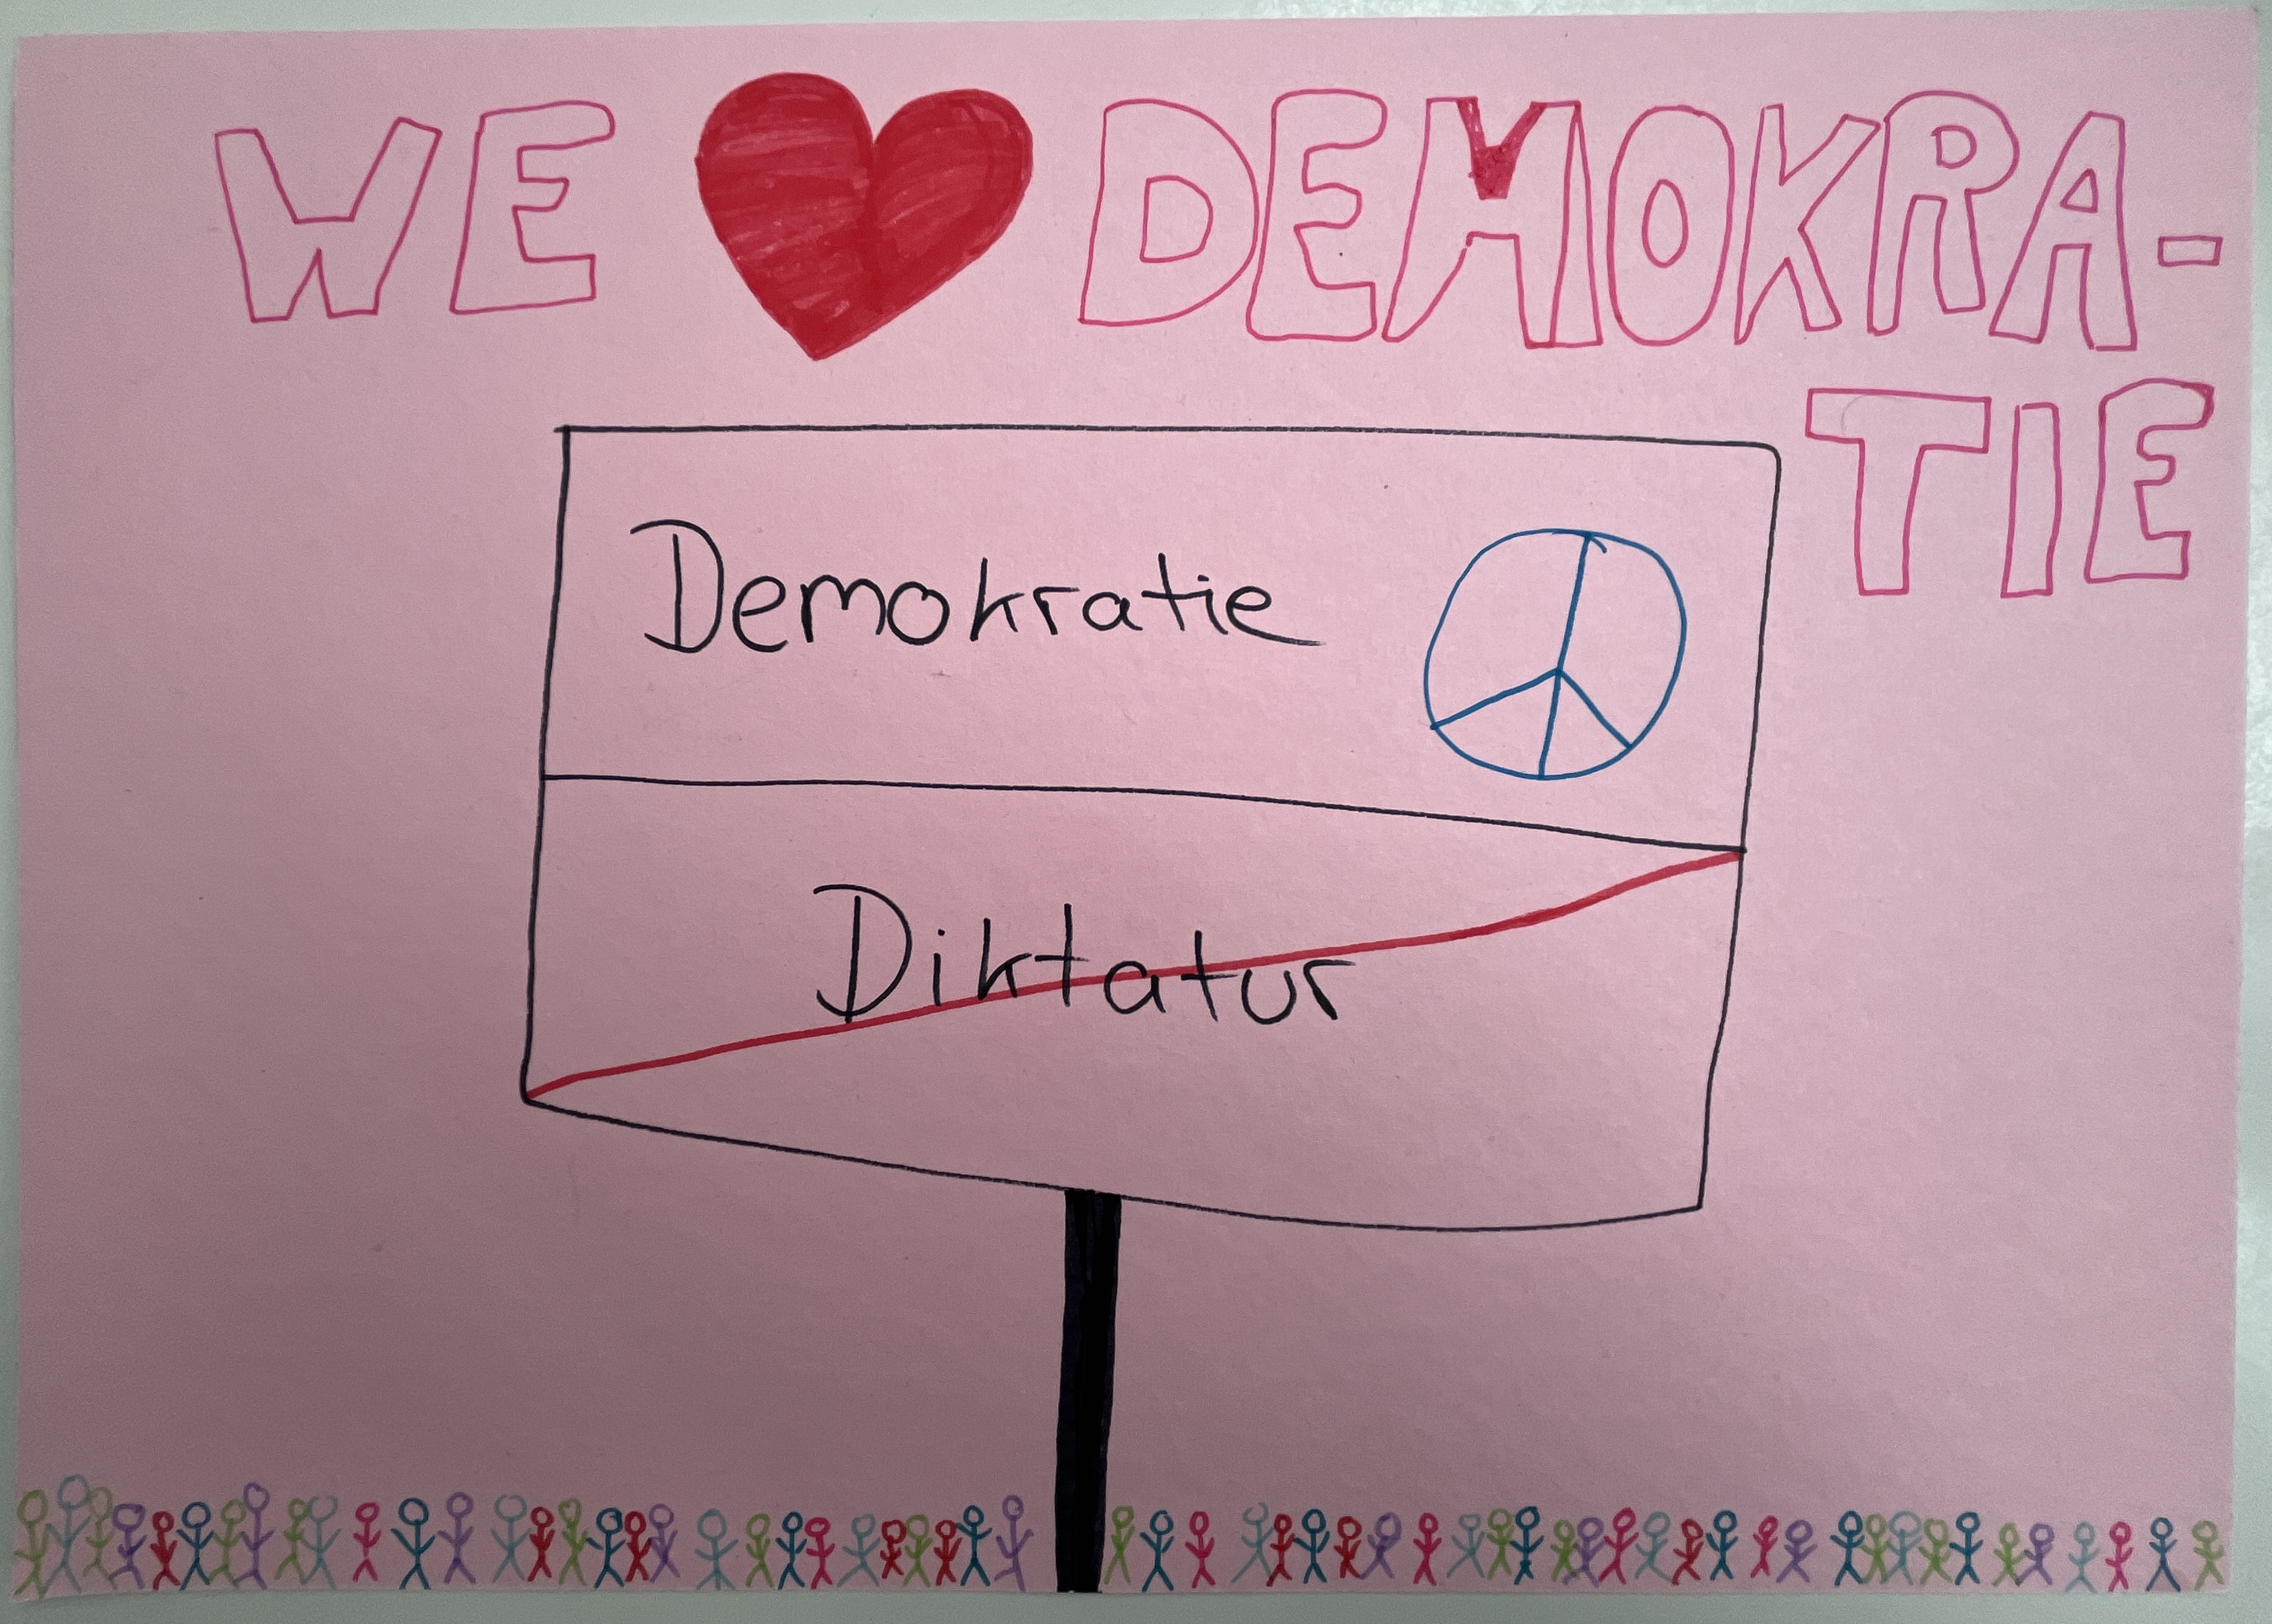 WE ❤ DEMOKRA-
TIE
Demokratie
Diktatur